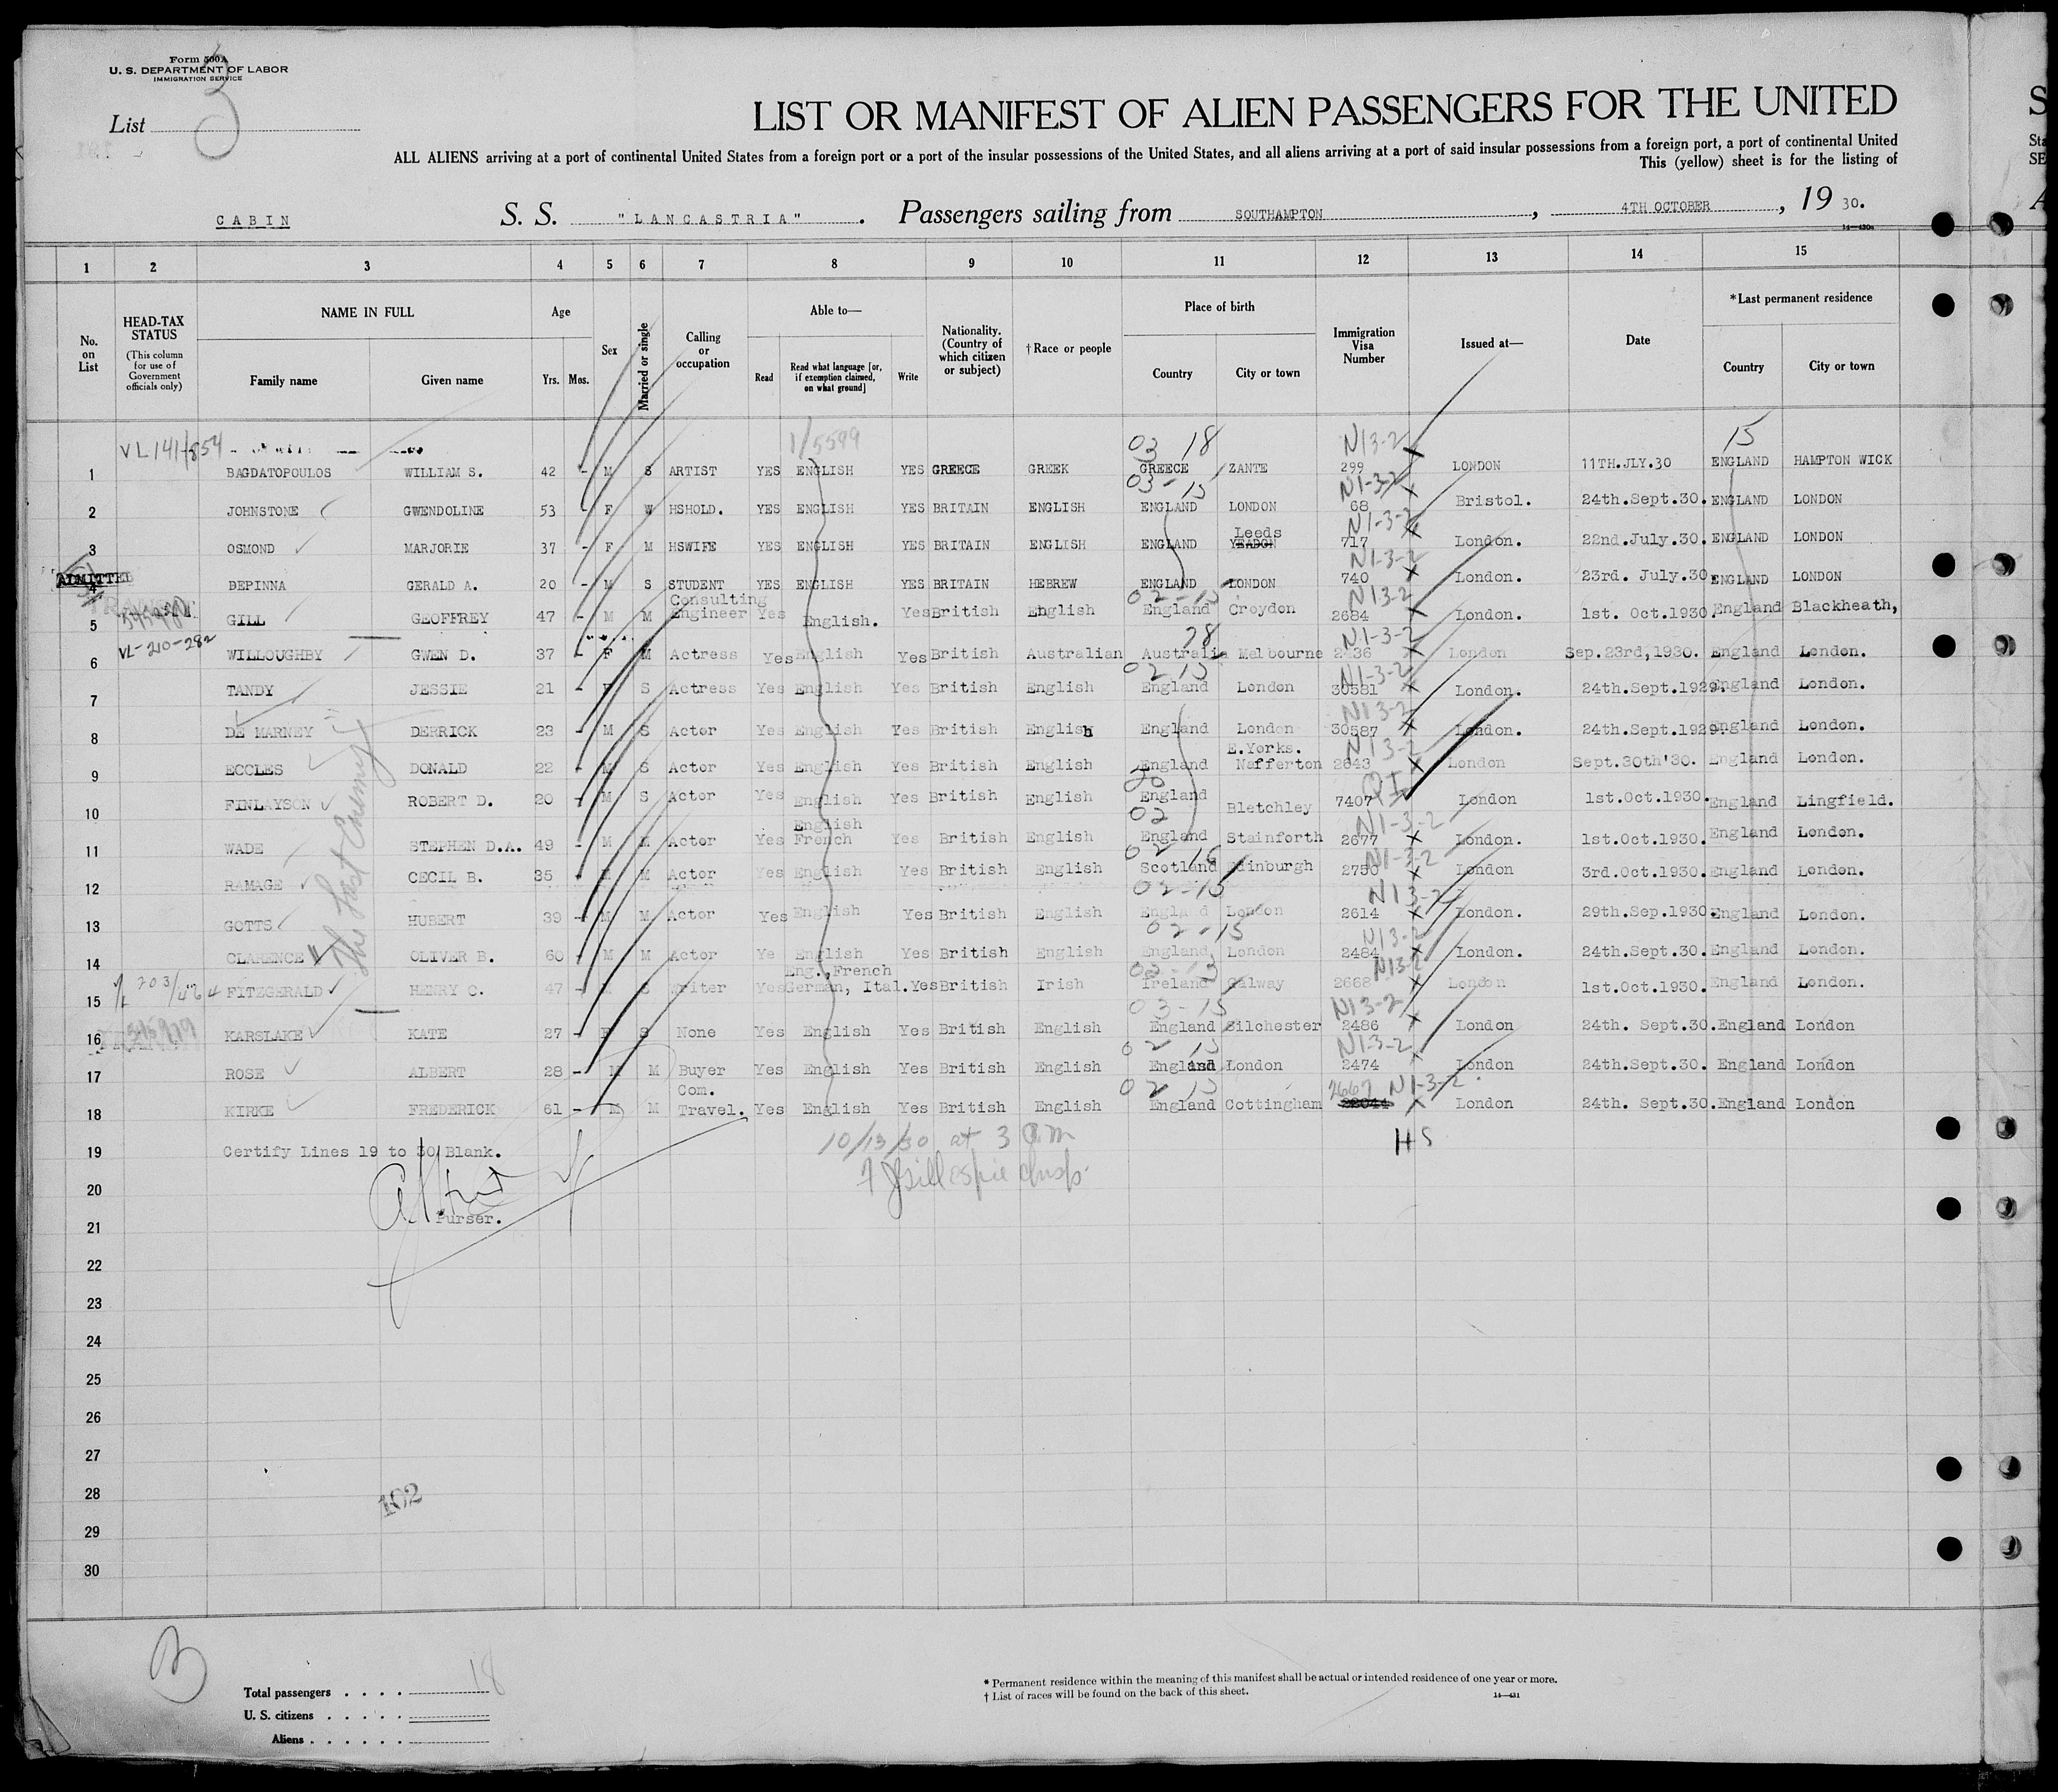 Form 500A
U. S. DEPARTMENT OF LABOR
IMMIGRATION SERVICE
List 3
LIST OR MANIFEST OF ALIEN PASSENGERS FOR THE UNITED
ALL ALIENS arriving at a port of continental United States from a foreign port or a port of the insular possessions of the United States, and all aliens arriving at a port of said insular possessions from a foreign port, a port of continental United
This (yellow) sheet is for the listing of
CABIN S. S. "LANCASTRIA". Passengers sailing from SOUTHAMPTON, 4TH OCTOBER, 19 30.
1 2 3 4 5 6 7 8 9 10 11 12 13 14 15
No. on List
HEAD-TAX STATUS
(This column for use of Government officials only)
NAME IN FULL
Family name Given name
Age
Yrs. Mos.
Sex
Married or single
Calling or occupation
Able to—
Read Read what language [or, if exemption claimed, on what ground] Write
Nationality. (Country of which citizen or subject)
† Race or people
Place of birth
Country City or town
Immigration Visa Number
Issued at—
Date
*Last permanent residence
Country City or town
VL141/854 1/5599 03 18 N13-2 15
1 BAGDATOPOULOS WILLIAM S. 42 - M S ARTIST YES ENGLISH YES GREECE GREEK GREECE ZANTE 299 LONDON 11TH.JLY.30 ENGLAND HAMPTON WICK
03-15 N1-3-2
2 JOHNSTONE GWENDOLINE 53 - F W HSHOLD. YES ENGLISH YES BRITAIN ENGLISH ENGLAND LONDON 68 Bristol. 24th.Sept.30. ENGLAND LONDON
N1-3-2
3 OSMOND MARJORIE 37 - F M HSWIFE YES ENGLISH YES BRITAIN ENGLISH ENGLAND Leeds YEADON 717 London. 22nd.July.30. ENGLAND LONDON
ADMITTED N1-3-2
4 DEPINNA GERALD A. 20 - M S STUDENT YES ENGLISH YES BRITAIN HEBREW ENGLAND LONDON 740 London. 23rd. July.30. ENGLAND LONDON
02-15 N13-2
5 GILL GEOFFREY 47 - M M Consulting Engineer Yes English. Yes British English England Croydon 2684 London. 1st. Oct.1930. England Blackheath,
VL-210-282 28 N1-3-2
6 WILLOUGHBY GWEN D. 37 - F M Actress Yes English Yes British Australian Australia Melbourne London Sep.23rd,1930. England London.
02 15 N1-3-2
7 TANDY JESSIE 21 - F S Actress Yes English Yes British English England London 30581 London. 24th.Sept.1929. England London.
N13-2
8 DE MARNEY DERRICK 23 - M S Actor Yes English Yes British English England London 30587 London. 24th.Sept.1929. England London.
N13-2
9 ECCLES DONALD 22 - M S Actor Yes English Yes British English England E.Yorks. Nafferton 2643 London Sept.30th'30. England London.
20 QI
10 FINLAYSON ROBERT D. 20 - M S Actor Yes English Yes British English England Bletchley 7407 London 1st.Oct.1930. England Lingfield.
02 N1-3-2
11 WADE STEPHEN D.A. 49 - M M Actor Yes English French Yes British English England Stainforth 2677 London. 1st.Oct.1930. England London.
02 16 N1-3-2
12 RAMAGE CECIL B. 35 - M M Actor Yes English Yes British English Scotland Edinburgh 2750 London 3rd.Oct.1930. England London.
02-15 N13-2
13 GOTTS HUBERT 39 - M M Actor Yes English Yes British English England London 2614 London. 29th.Sep.1930. England London.
02-15 N13-2
14 CLARENCE OLIVER B. 60 - M M Actor Ye English Yes British English England London 2484 London. 24th.Sept.30. England London.
The Last Enemy
203/424 N13-2
15 FITZGERALD HENRY C. 47 - M S Writer Yes Eng.,French German, Ital. Yes British Irish Ireland Galway 2668 London 1st.Oct.1930. England London.
03-15 N13-2
16 KARSLAKE KATE 27 - F S None Yes English Yes British English England Silchester 2486 London 24th. Sept.30. England London
02 15 N1-3-2
17 ROSE ALBERT 28 - M M Buyer Yes English Yes British English England London 2474 London 24th.Sept.30. England London
02 15 2667 N1-3-2
18 KIRKE FREDERICK 61 - M M Com. Travel. Yes English Yes British English England Cottingham London 24th. Sept.30. England London
10/13/30 at 3 P.M HS
19 Certify Lines 19 to 30 Blank.
F J Gillespie Insp.
20
21 Purser.
22
23
24
25
26
27
28
102
29
30
Total passengers . . . . 18
U. S. citizens . . . . .
Aliens . . . . . .
* Permanent residence within the meaning of this manifest shall be actual or intended residence of one year or more.
† List of races will be found on the back of this sheet.
14—431